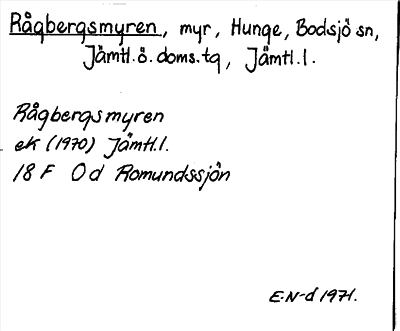 Rågbergsmyren, myr, Hunge, Bodsjö sn,
Jämtl.ö.doms.tg, Jämtl.l.
Rågbergsmyren
ek (1970) Jämtl.l.
18 F Od Romundssjön
E.N-d 1971.